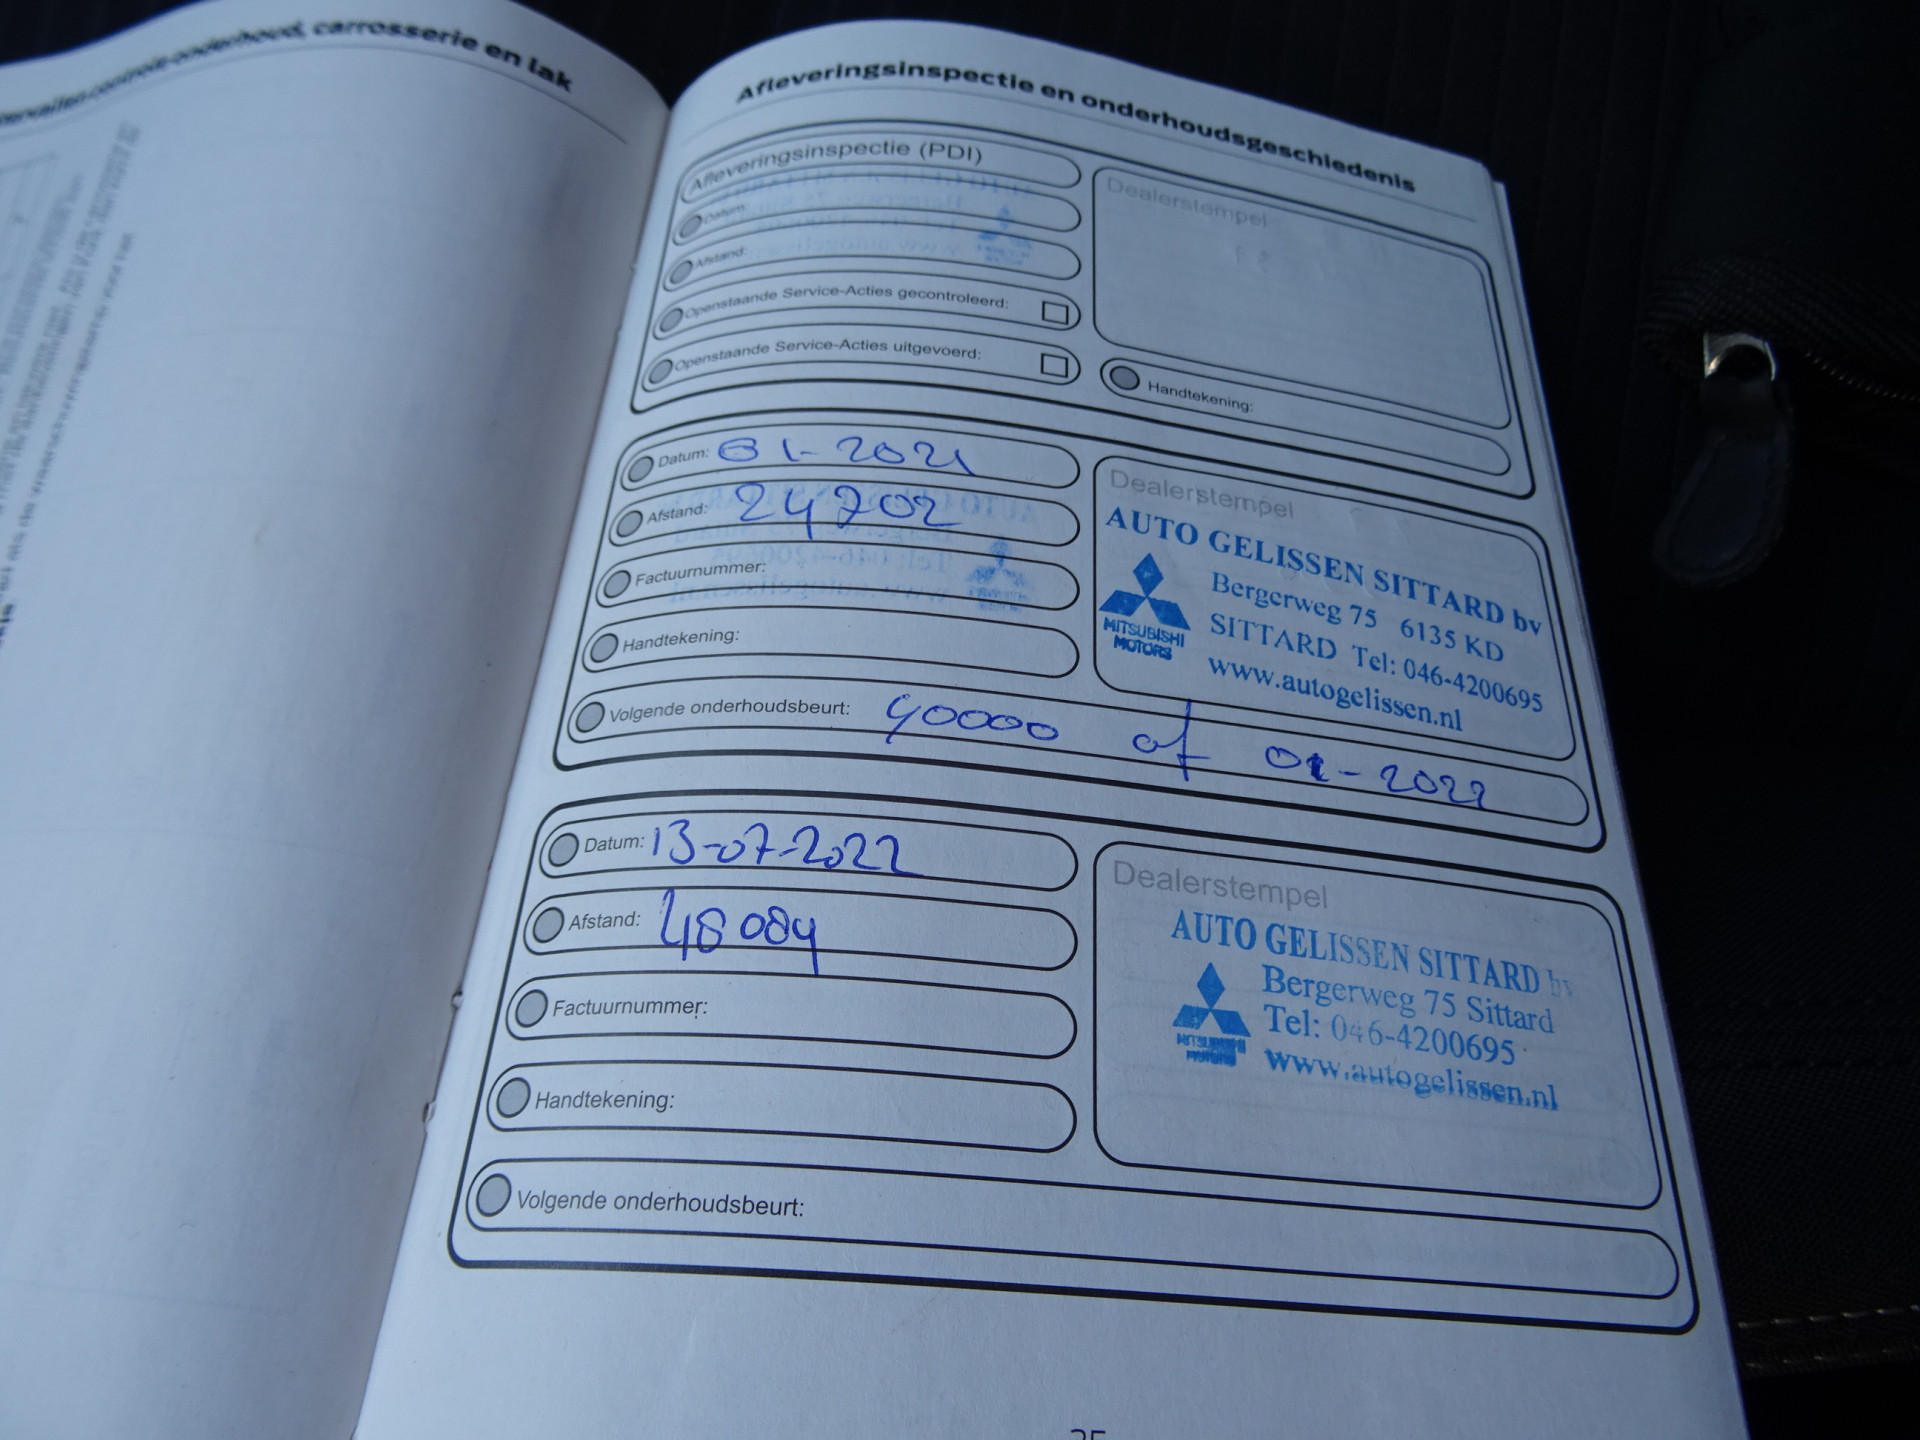 controle-onderhoud, carrosserie en lak
Afleveringsinspectie en onderhoudsgeschiedenis
Afleveringsinspectie (PDI)
Datum:
Afstand:
Openstaande Service-Acties gecontroleerd:
Openstaande Service-Acties uitgevoerd:
Dealerstempel
Handtekening:
Datum: 01-2021
Afstand: 24702
Factuurnummer:
Handtekening:
Volgende onderhoudsbeurt: 40000 of 01-2022
Dealerstempel
AUTO GELISSEN SITTARD bv
Bergerweg 75 6135 KD
SITTARD Tel: 046-4200695
www.autogelissen.nl
MITSUBISHI
MOTORS
Datum: 13-07-2022
Afstand: 48084
Factuurnummer:
Handtekening:
Volgende onderhoudsbeurt:
Dealerstempel
AUTO GELISSEN SITTARD bv
Bergerweg 75 Sittard
Tel: 046-4200695
www.autogelissen.nl
MITSUBISHI
MOTORS